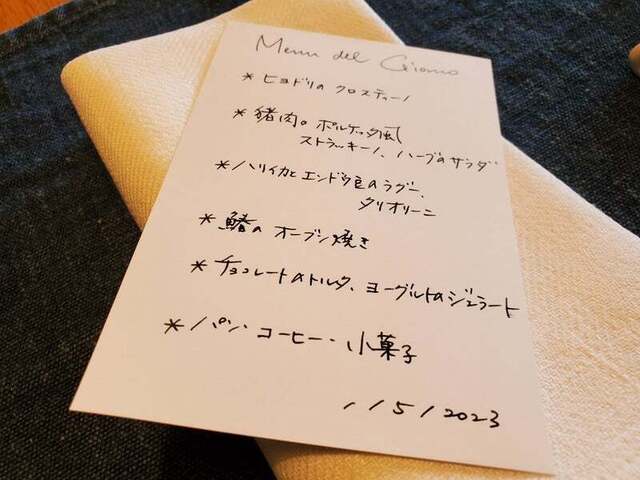 Menu del Giorno
* ヒヨドリの クロスティーノ
* 猪肉の ポルケッタ風
ストラッキーノ、ハーブのサラダ
* ハリイカとエンドウ豆のラグー、
タリオリーニ
* 鰆の オーブン焼き
* チョコレートのトルタ、ヨーグルトのジェラート
* パン・コーヒー・小菓子
1/5/2023